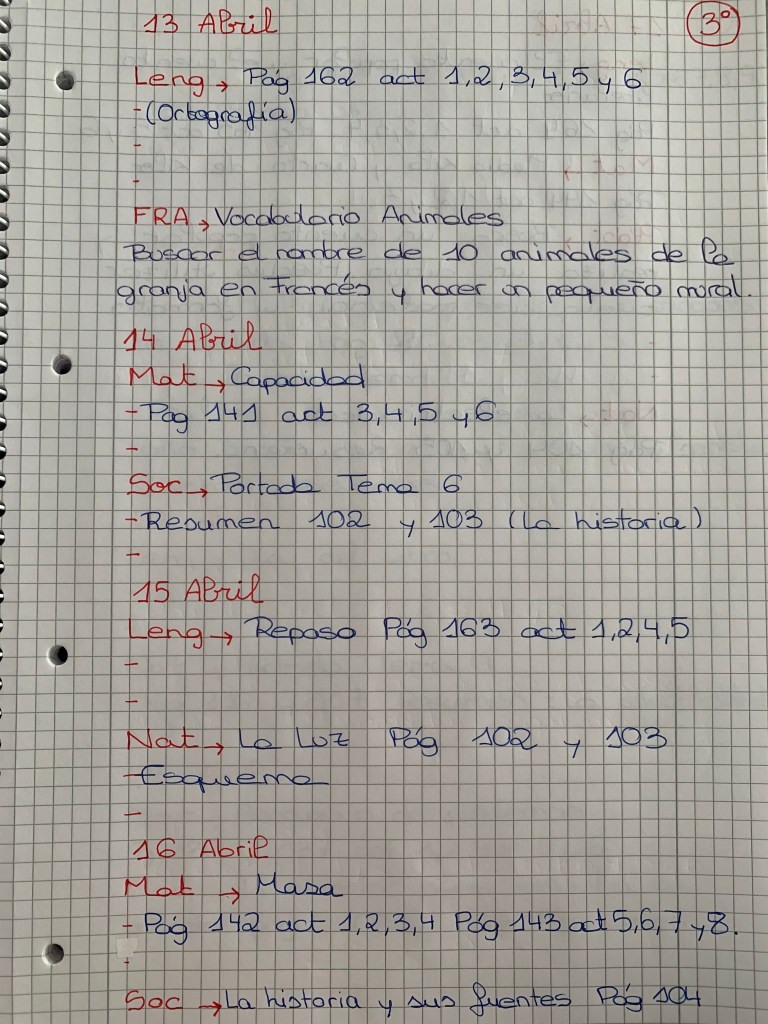 13 Abril
3º
Leng → Pág 162 act 1,2,3,4,5 y 6
-(Ortografía)
-
-
FRA → Vocabulario Animales
Buscar el nombre de 10 animales de la
granja en Francés y hacer un pequeño mural.
14 Abril
Mat → Capacidad
- Pag 141 act 3,4,5 y 6
-
Soc → Portada Tema 6
- Resumen 102 y 103 (La historia)
-
15 Abril
Leng → Repaso Pág 163 act 1,2,4,5
-
-
Nat → La Luz Pág 102 y 103
-Esquema
-
16 Abril
Mat → Masa
- Pág 142 act 1,2,3,4 Pág 143 act 5,6,7 y 8.
-
Soc → La historia y sus fuentes Pág 104